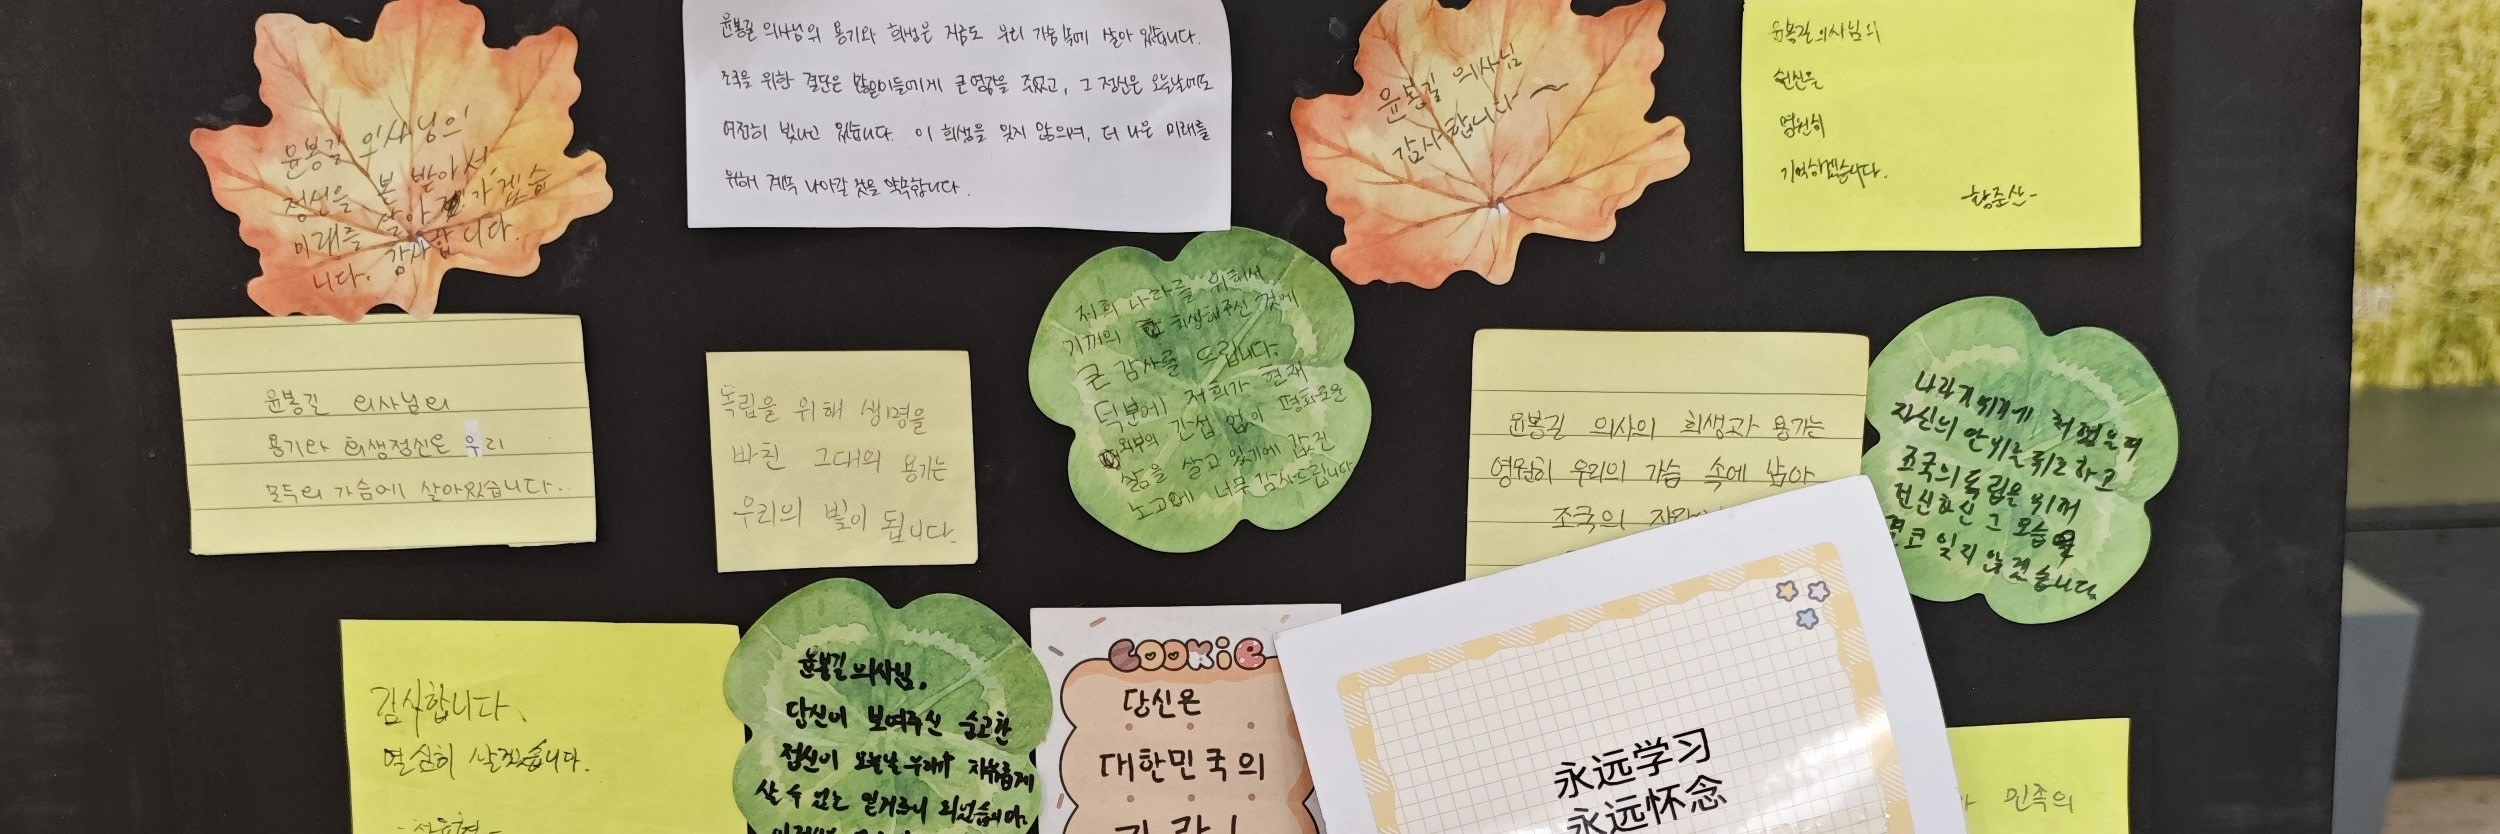 윤봉길 의사님의
정신을 본 받아서,
미래를 살아가겠습
니다. 감사합니다.
윤봉길 의사님의 용기와 희생은 지금도 우리 가슴속에 살아 있습니다.
조국을 위한 결단은 많은이들에게 큰 영감을 주었고, 그 정신은 오늘날에도
여전히 빛나고 있습니다. 이 희생을 잊지 않으며, 더 나은 미래를
위해 계속 나아갈 것을 약속합니다.
윤봉길 의사님
감사합니다~
윤봉길의사님의
헌신을
영원히
기억하겠습니다.
-황준산-
윤봉길 의사님의
용기와 희생정신은 우리
모두의 가슴에 살아있습니다.
독립을 위해 생명을
바친 그대의 용기는
우리의 빛이 됩니다.
저희 나라를 위해서
기꺼의 희생해주신 것에
큰 감사를 드립니다.
덕분에 저희가 현재
외부의 간섭 없이 평화로운
삶을 살고 있기에 값진
노고에 너무 감사드립니다
윤봉길 의사의 희생과 용기는
영원히 우리의 가슴 속에 남아
조국의
나라지키기에 처했을때
자신의 안위는 뒤로하고
조국의 독립을 위해
헌신하신 그 모습
결코 잊지 않겠습니다
감사합니다.
열심히 살겠습니다.
윤봉길 의사님,
당신이 보여주신 숭고한
정신이 오늘날 우리가 자유롭게
살 수 있는 밑거름이 되었습니다.
COOKIE
당신은
대한민국의
永远学习
永远怀念
민족의